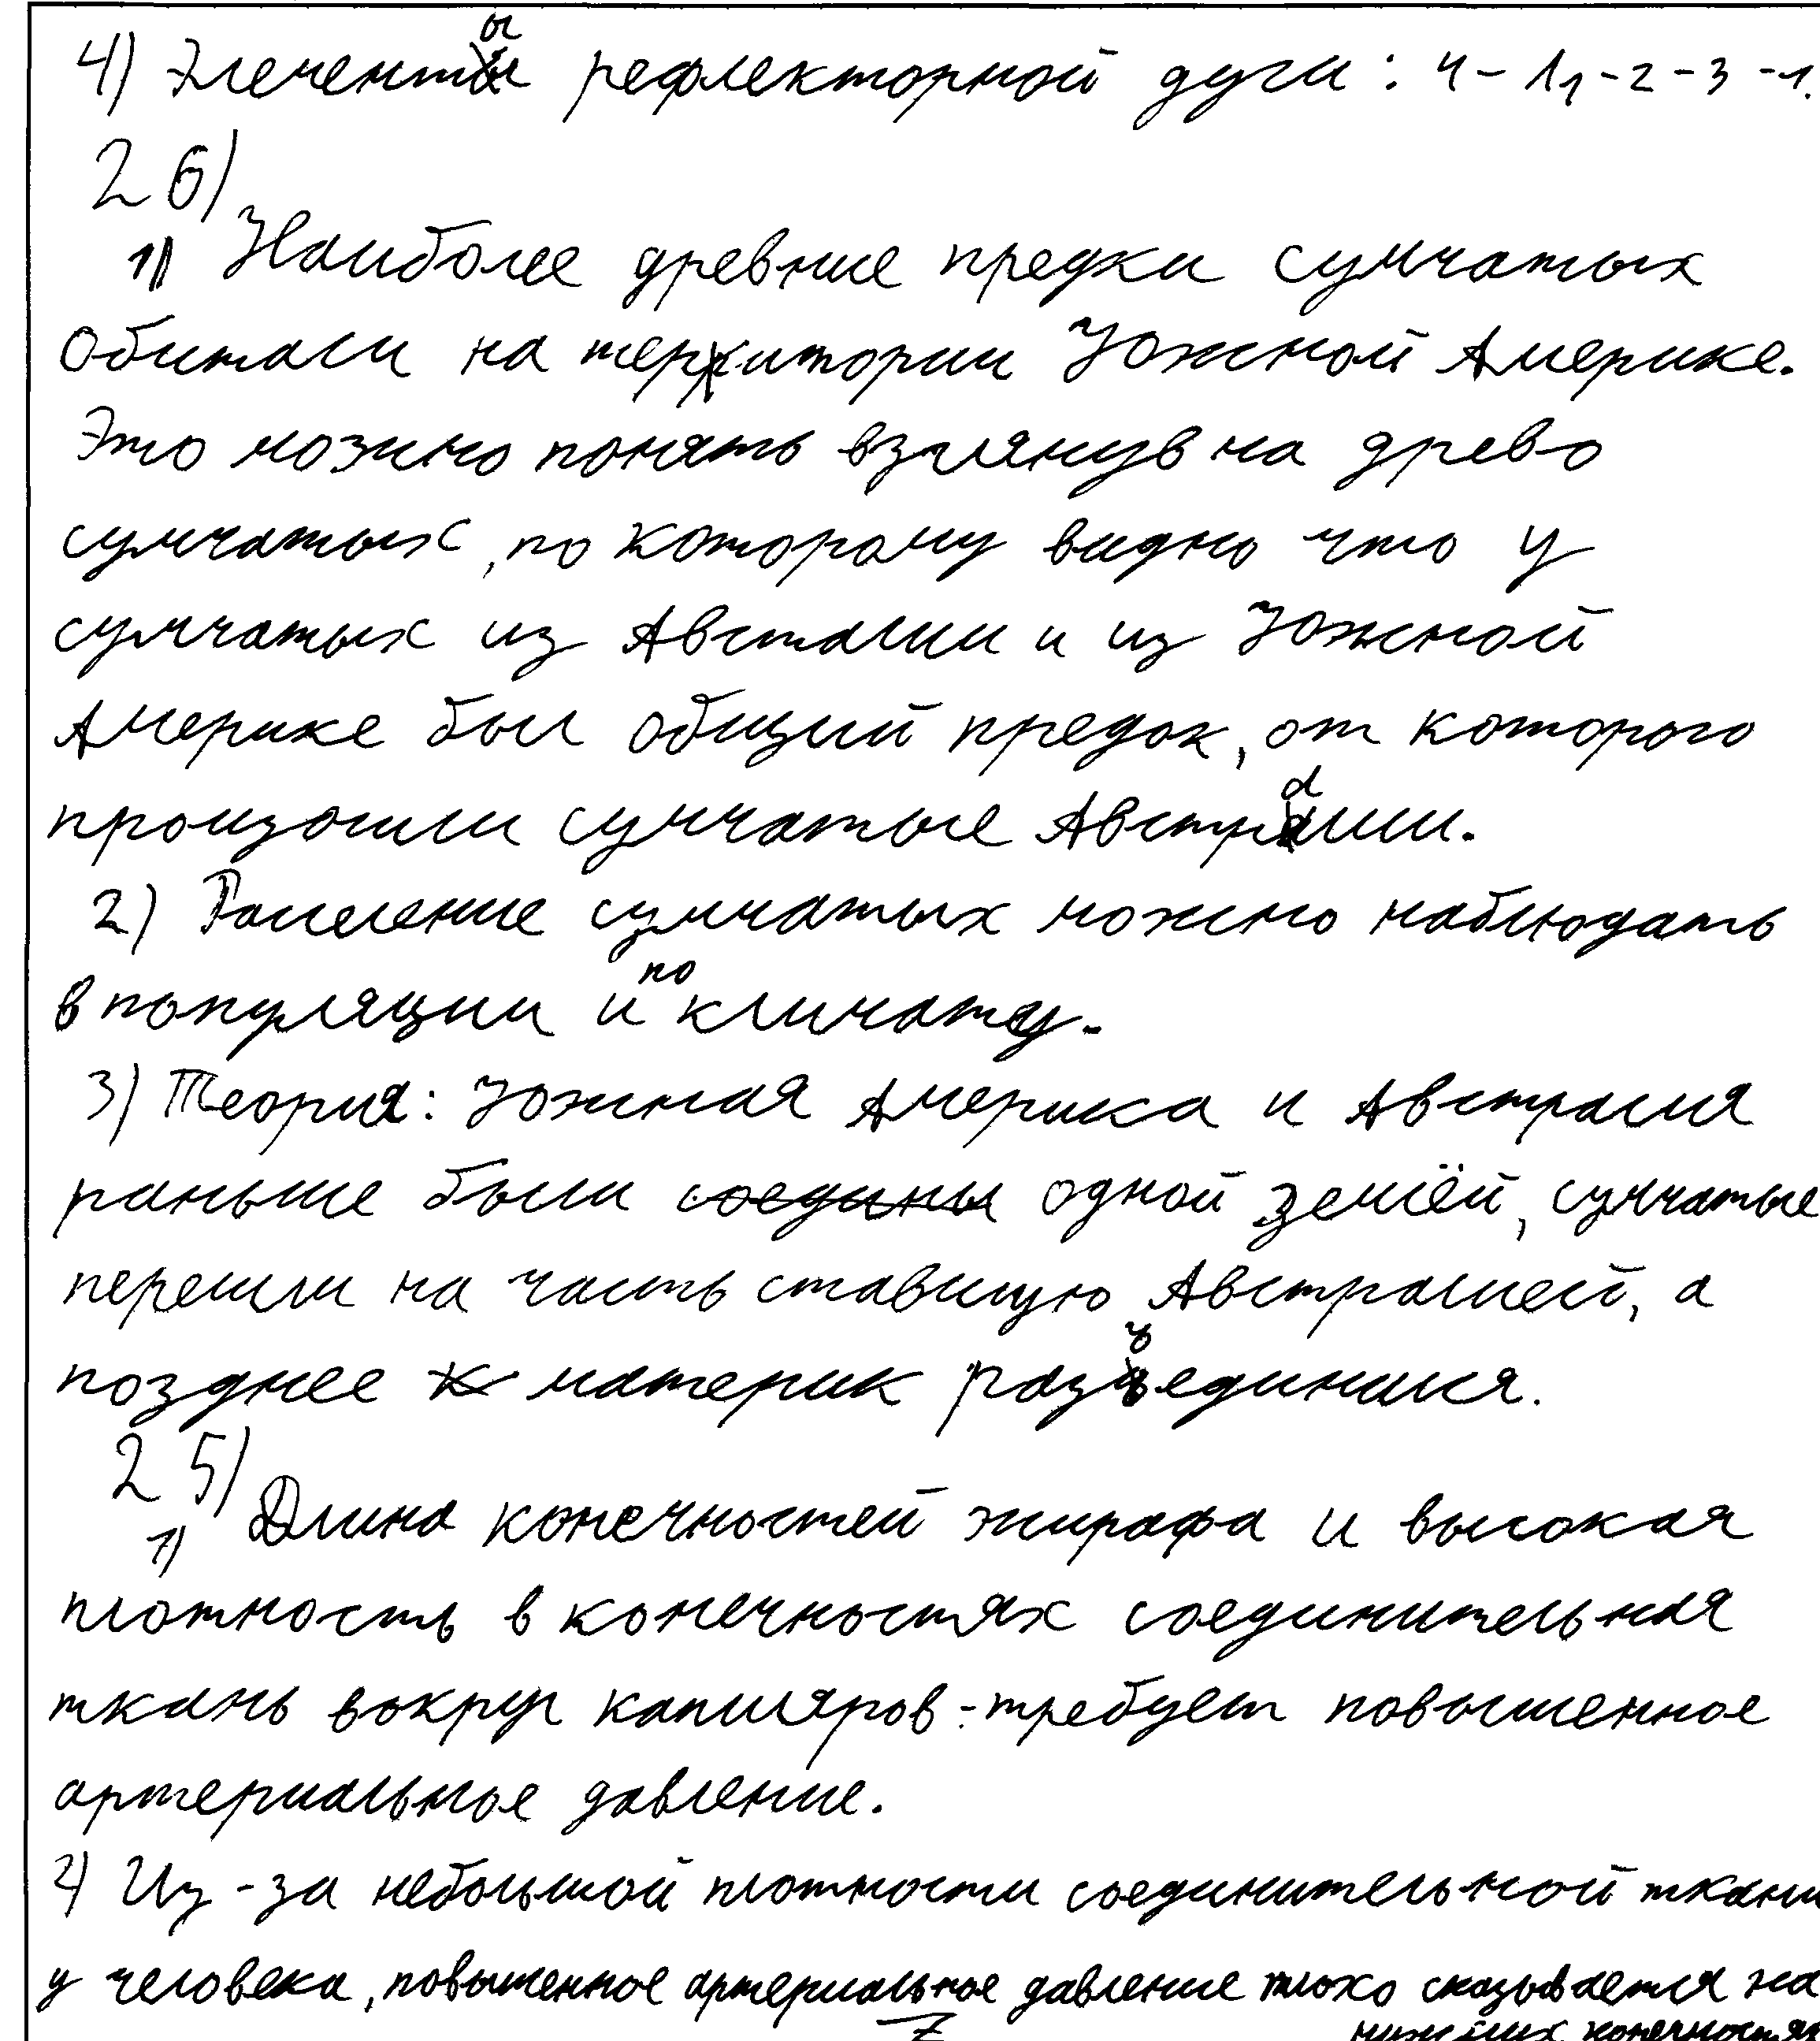 4) Элементы рефлекторной дуги: 4-1,-2-3-1.
26)
1) Наиболее древние предки сумчатых
обитали на территории Южной Америке.
Это можно понять взглянув на древо
сумчатых, по которому видно что у
сумчатых из Австалии и из Южной
Америке был общий предок, от которого
произошли сумчатые Австралии.
2) Раселение сумчатых можно наблюдать
в популяции и по климату.
3) Теория: Южная Америка и Австралия
раньше были соедины одной землёй, сумчатые
перешли на часть ставшую Австралией, а
позднее материк разъединился.
25)
1) Длина конечностей жирафа и высокая
плотность в конечностях соединительная
ткань вокруг капиляров - требует повышенное
артериальное давление.
2) Из-за небольшой плотности соединительной ткани
у человека, повышенное артериальное давление плохо сказывается на
нижних конечностях